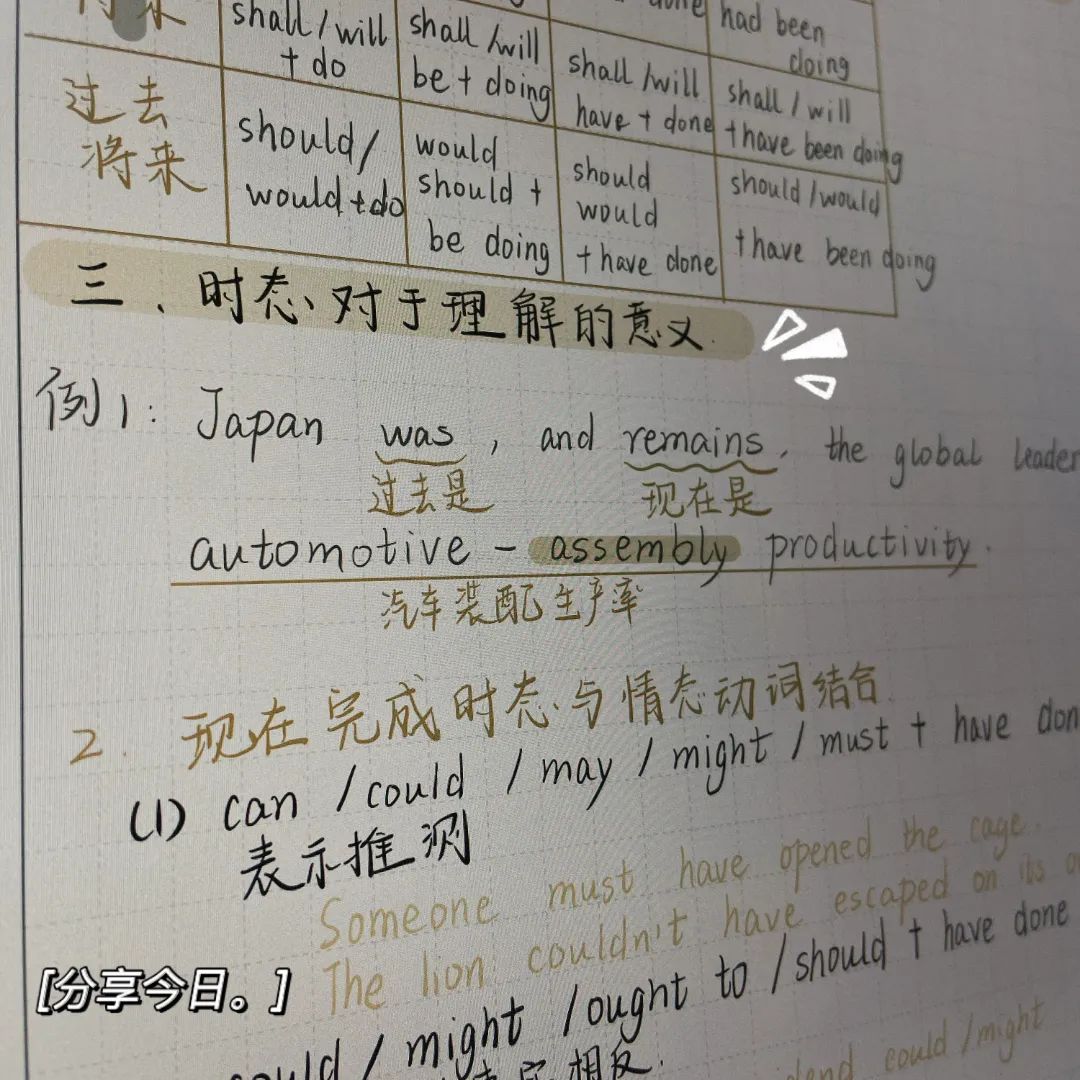 had been
doing
shall/will
+ do
shall/will
be + doing
shall/will
have + done
shall/will
+ have been doing
过去
将来
should/
would + do
would
should +
be doing
should
would
+ have done
should/would
+ have been doing
三、时态对于理解的意义.
例1: Japan was, and remains, the global leader
过去是 现在是
automotive - assembly productivity.
汽车装配生产率
2. 现在完成时态与情态动词结合.
(1) can /could /may /might /must + have don
表示推测
Someone must have opened the cage.
The lion couldn't have escaped on its
/might /ought to /should + have done
相反.
could/might
[分享今日。]